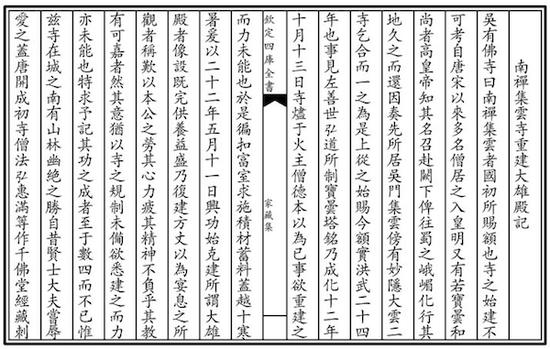 南禪集雲寺重建大雄殿記
吳有佛寺曰南禪集雲者國初所賜額也寺之始建不
可考自唐宋以來多名僧居之入皇明又有若寶曇和
尚者高皇帝知其名召赴闕下俾往蜀之峨嵋化行其
地久之而還因奏先所居吳門集雲傍有妙隱大雲二
寺乞合而一之為是上從之始賜今額實洪武二十四
年也事見左善世弘道所制寶曇塔銘乃成化十二年
十月十三日寺燼于火主僧德本以為已事欲重建之
欽定四庫全書
家藏集
而力未能也於是徧扣富室求施積材蓄料蓋越十寒
暑爰以二十二年五月十一日興功始克建所謂大雄
殿者像設既完供養益盛乃復建方丈以為宴息之所
觀者稱歎以本公之勞其心力疲其精神不負乎其教
有可嘉者然其意猶以寺之規制未備欲悉建之而力
亦未能也特求予記其功之成者至于數四而不已惟
兹寺在城之南有山林幽絶之勝自昔賢士大夫嘗辱
愛之蓋唐開成初寺僧法弘惠滿等作千佛堂經藏刺